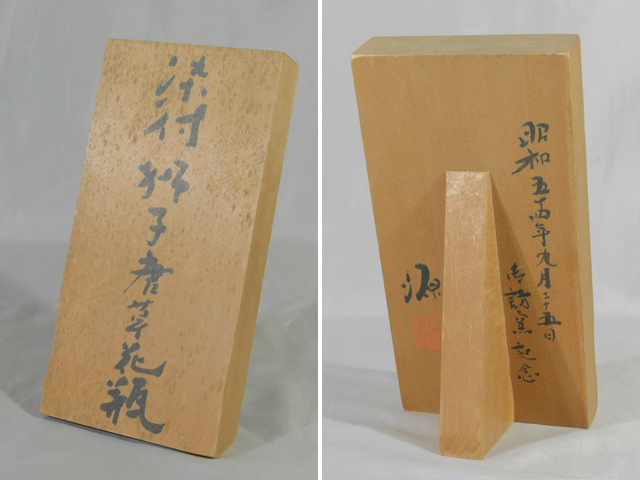 染付獅子唐草花瓶
昭和五十四年九月二十五日
御訪窯記念
源